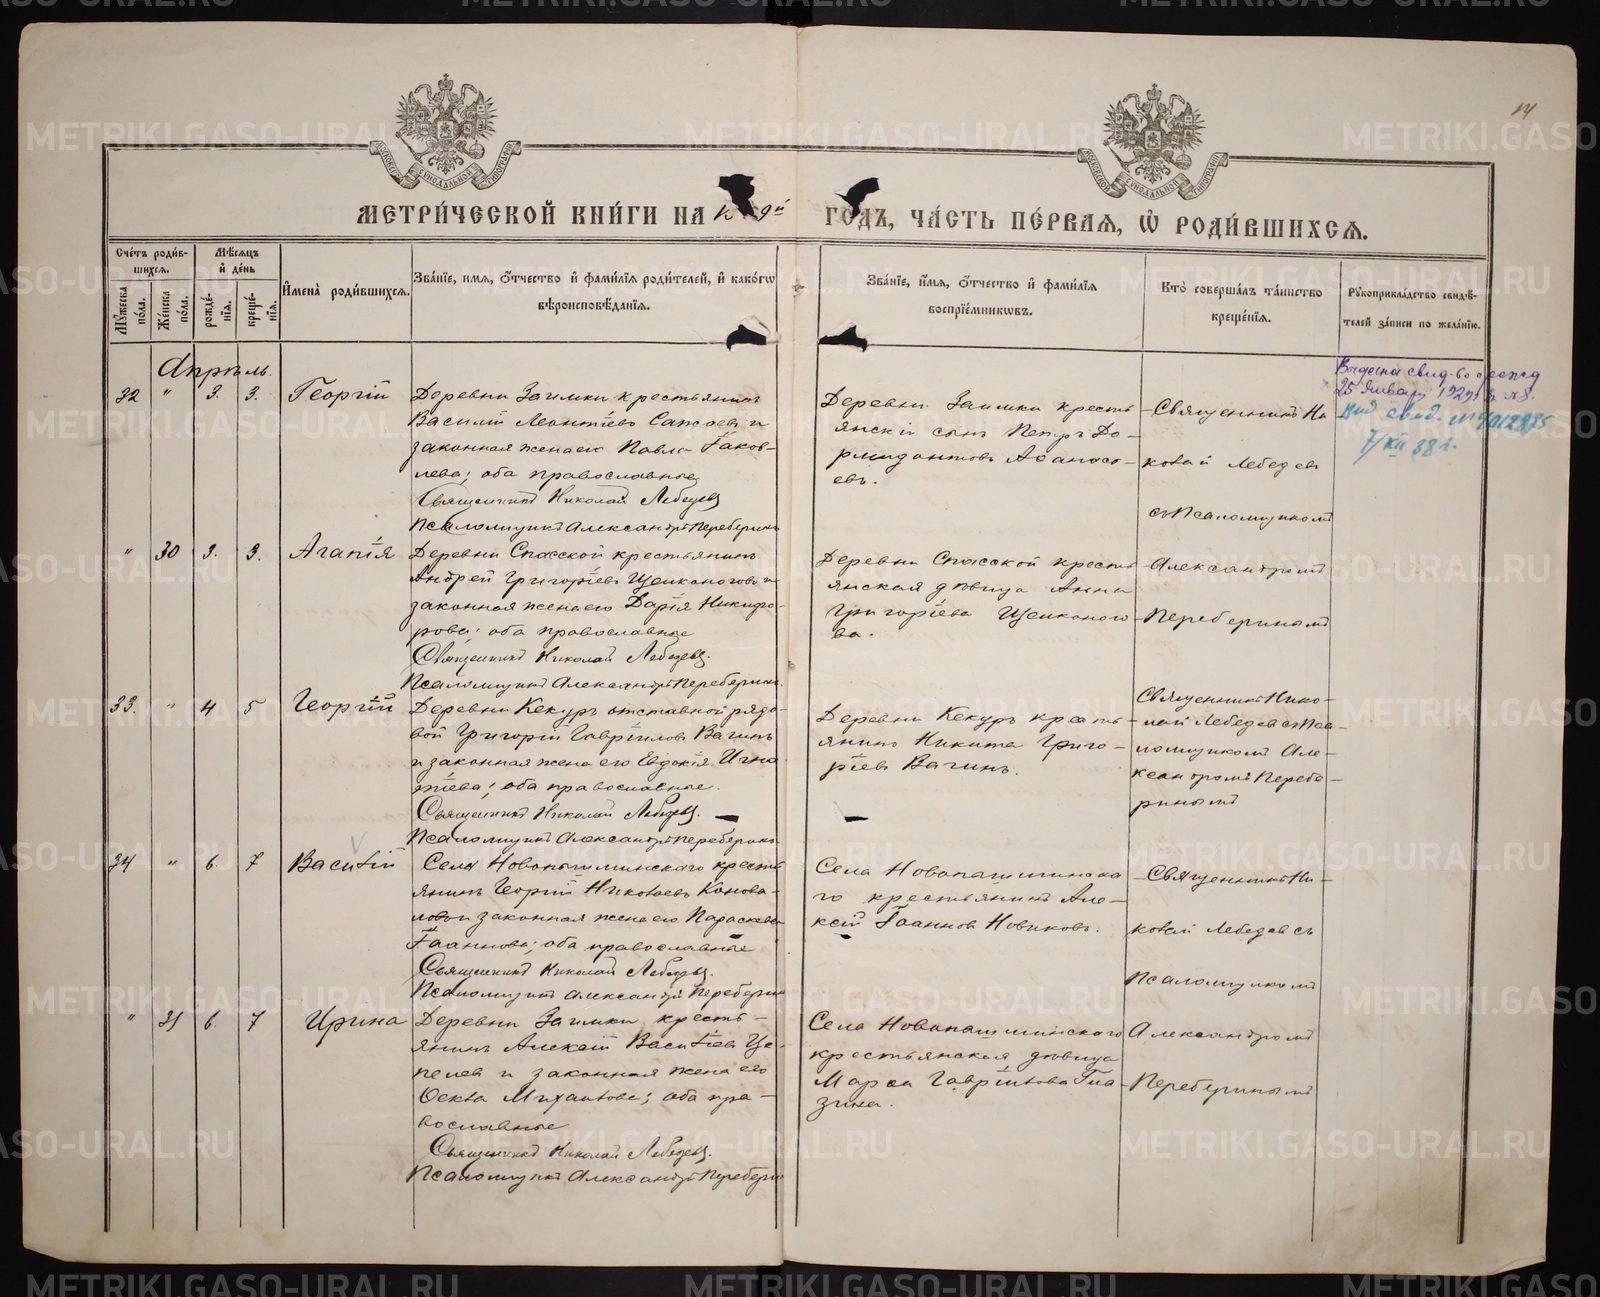 МЕТРИ́ЧЕСКОЙ КНИ́ГИ НА
ГОДЪ, ЧА́СТЬ ПЕ́РВАЯ, Ѡ РОДИ́ВШИХСЯ.
14
Сче́тъ роди́в-
шихся.
Мѣ́сяцъ
и҆ де́нь
Мꙋ́жеска по́ла.
Же́нска по́ла.
рожде́-
нїѧ.
креще́-
нїѧ.
И҆мена̀ роди́вшихся.
Зва́нїе, имя, о́тчество и҆ фами́лїѧ роди́телей, и҆ како́гѡ
вѣроисповѣ́данїѧ.
Зва́нїе, и҆́мя, о́тчество и҆ фами́лїѧ
воспрїе́мникѡвъ.
Кто̀ соверша́лъ та́инство
креще́нїѧ.
Рꙋкоприкла́дство свидѣ́-
телей за́писи по жела́нїю.
Апрѣль.
32 " 3. 3. Георгій
Деревни Заимки крестьянинъ
Василій Леонтіевъ и
законная жена его Яков-
лева; оба православные
Священникъ Николай Лебедевъ
Псаломщикъ Александръ Переберинъ
Деревни Заимки кресть-
янскій сынъ Петръ До-
римидонтовъ Аѳанась-
евъ.
Священникъ Ни-
колай Лебедевъ
съ Псаломщикомъ
25 Января 1929 г. № 8.
7/XII 38 г.
" 30 3. 3. Агапія
Деревни Спасской крестьянинъ
Андрей Григоріевъ и
законная жена его Дарія Никифо-
рова; оба православные
Священникъ Николай Лебедевъ.
Псаломщикъ Александръ Переберинъ.
Деревни Спасской кресть-
янская дѣвица Анна
Григоріева
Александромъ
Переберинымъ
33. " 4 5 Георгій
Деревни Кекуръ отставной рядо-
вой Григорій Гавріиловъ Вагинъ
и законная жена его Евдокія Игна-
тіева; оба православные.
Священникъ Николай Лебедевъ.
Псаломщикъ Александръ Переберинъ
Деревни Кекуръ кресть-
янинъ Никита Григо-
ріевъ Вагинъ.
Священникъ Нико-
лай Лебедевъ съ Пса-
ломщикомъ Але-
ксандромъ Перебе-
ринымъ
34 " 6. 7 Василій
Села Новопышминскаго кресть-
янинъ Георгій Николаевъ Конова-
ловъ и законная жена его Параскева
Іоаннова; оба православные
Священникъ Николай Лебедевъ.
Псаломщикъ Александръ Переберинъ
Села Новопышминска-
го крестьянинъ Але-
ксій Іоанновъ Новиковъ.
Священникъ Ни-
колай Лебедевъ съ
Псаломщикомъ
" 31 6. 7 Ирина
Деревни Заимки кресть-
янинъ Алексій Василіевъ Це-
пелевъ и законная жена его
Ѳекла Михайлова; оба пра-
вославные
Священникъ Николай Лебедевъ.
Псаломщикъ Александръ Переберинъ
Села Новопышминскаго
крестьянская дѣвица
Марѳа Гавріилова Гла-
зина.
Александромъ
Переберинымъ
METRIKI.GASO-URAL.RU